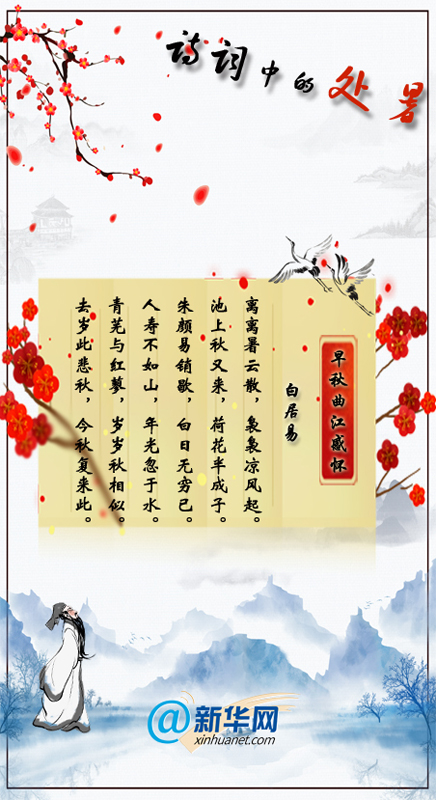 诗词中的处暑
早秋曲江感怀
白居易
离离暑云散，袅袅凉风起。
池上秋又来，荷花半成子。
朱颜易销歇，白日无穷已。
人寿不如山，年光忽于水。
青芜与红蓼，岁岁秋相似。
去岁此悲秋，今秋复来此。
@新华网
xinhuanet.com